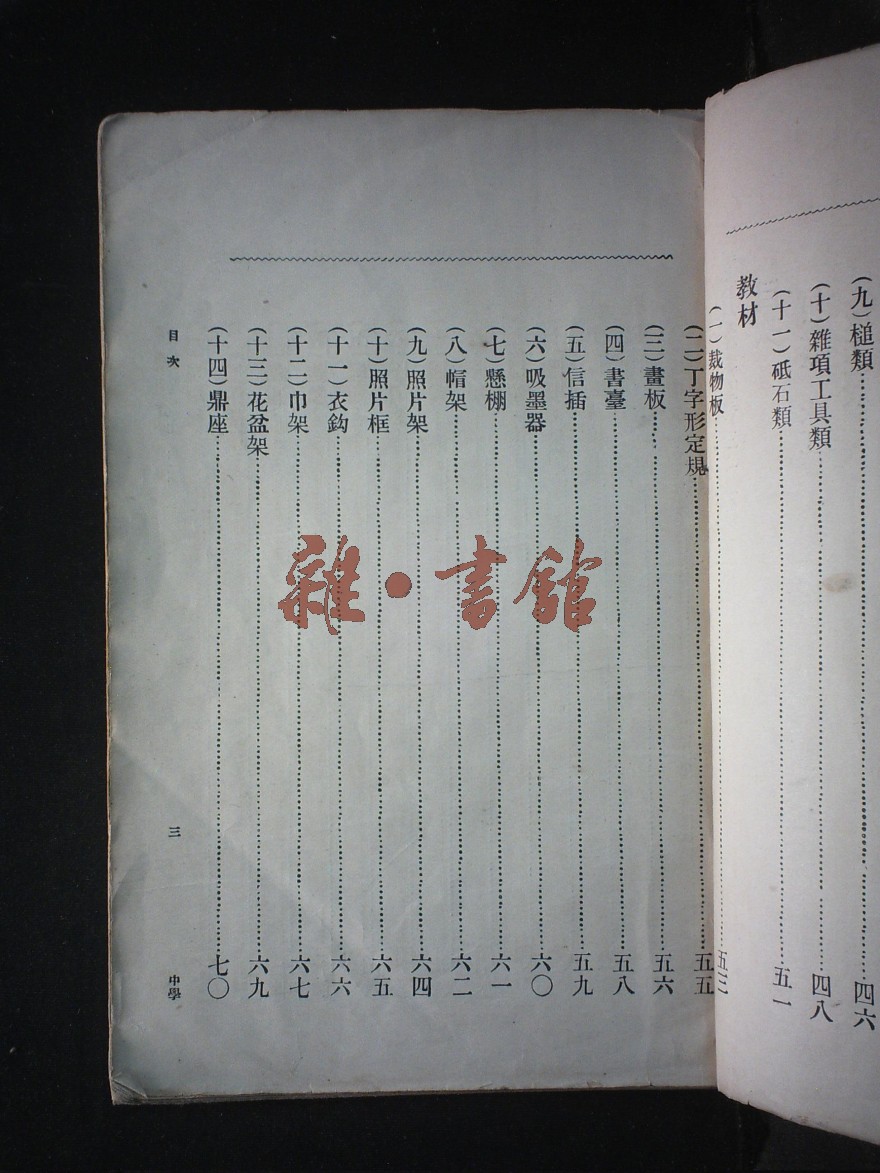 (九)槌類……四六
(十)雜項工具類……四八
(十一)砥石類……五一
教材
(一)裁物板……五三
(二)丁字形定規……五五
(三)畫板……五六
(四)書臺……五八
(五)信插……五九
(六)吸墨器……六〇
(七)懸棚……六一
(八)帽架……六二
(九)照片架……六四
(十)照片框……六五
(十一)衣鈎……六六
(十二)巾架……六七
(十三)花盆架……六九
(十四)鼎座……七〇
目次
三
中學
雜·書館